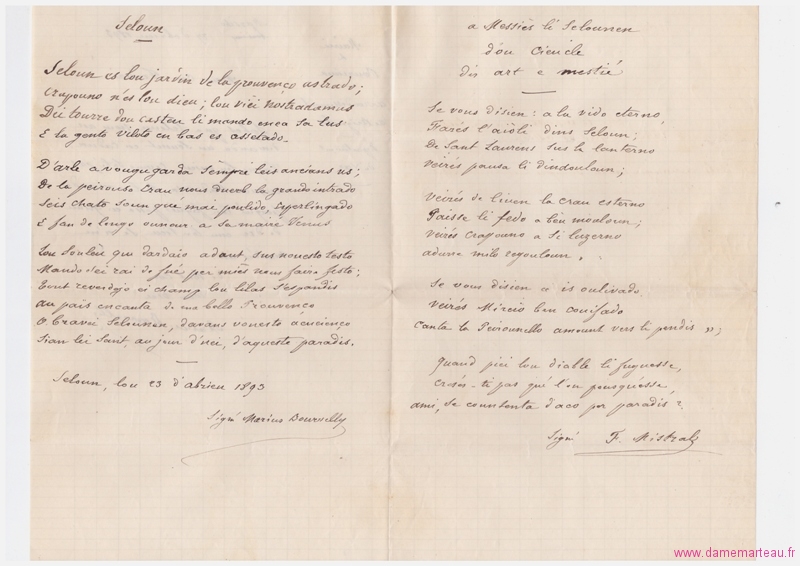 Seloun
Seloun es lou jardin de la prouvenço astrado;
Crapouno n'es lou dieu; lou viei Nostradamus
Dei tourre dou casteu li mando enca sa lus
E la gento viloto en bas es assetado.
D'arle a vougu garda sempre leis ancians us;
De la peirouso Crau nous duerb la grando intrado
Seis chato soun qué mai poulido, esperlingado
E fan de longo ounour a sa maire Venus
Lou Soulèu que dardaio adaut, sus nouesto testo
Mando sei rai de fué per miés nous faire festo;
Tout reverdejo ei champ lou lilas s'espandis
au païs encanta de ma bello Prouvenço
O bravei Selounen, davans vouesto
Sian lei Sant au jour d'uei, d'aqueste paradis.
Seloun, lou 23 d'abrieu 1893
Signé Marius
a Messiés li Selounen
dou Cieucle
dis art e mestié
Se vous disien: a la vido eterno,
Farés l'aiòli dins Seloun;
De Sant Laurens sus la lanterno
Veirés pausa li dindouloun;
Veirés de liuen la crau esterno
Paisse li fedo a bèu mouloun;
Veirés Crapouno a si luzerno
adurre milo regouloun.
Se vous disien a is oulivado
Veirés Mirèio ben couifado
Canta la Peirounello amount vers ti pendis »;
Quand pièi lou diable li fuguesse,
Cresés-ti pas qué l'on pousquèsse,
ami, se countenta d'aco per paradis?
Signé F. Mistral
www.damemarteau.fr